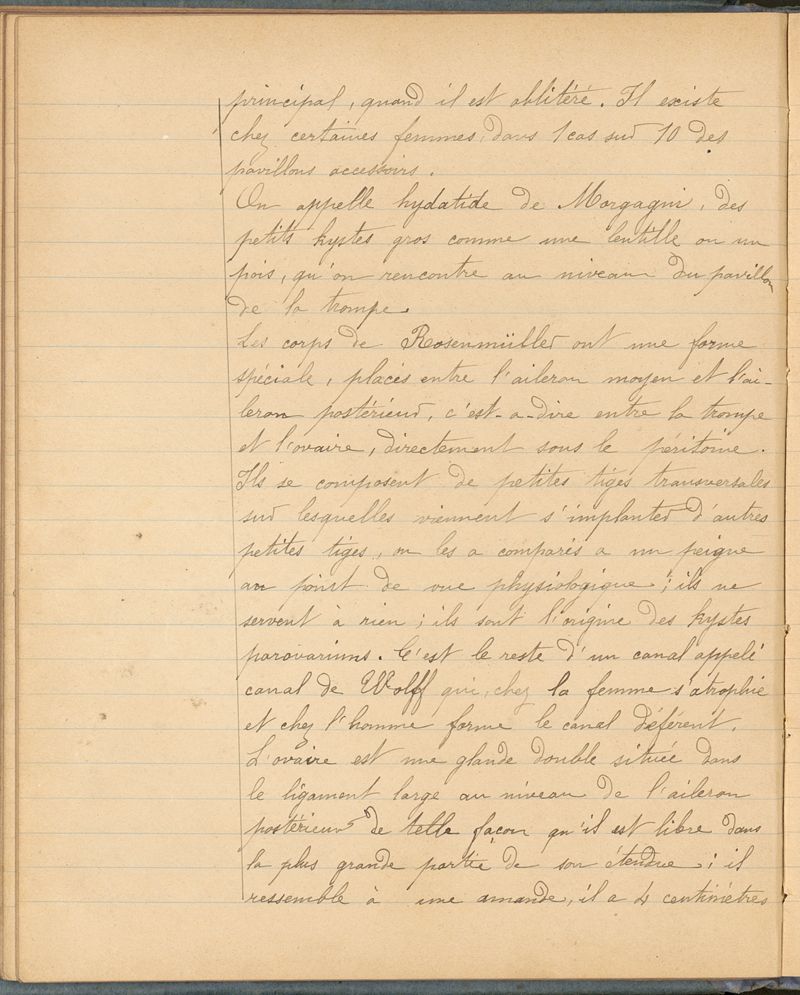 principal, quand il est oblitéré. Il existe
chez certaines femmes, dans 1 cas sur 10 des
pavillons accessoirs.
On appelle hydatide de Morgagni, des
petits kystes gros comme une lentille ou un
pois, qu'on rencontre au niveau du pavillon
de la trompe.
Les corps de Rosenmüller ont une forme
spéciale, placés entre l'aileron moyen et l'ai-
leron postérieur, c'est-a-dire entre la trompe
et l'ovaire, directement sous le péritoine.
Ils se composent de petites tiges transversales
sur lesquelles viennent s'implanter d'autres
petites tiges, on les a comparés a un peigne
au point de vue physiologique ; ils ne
servent à rien ; ils sont l'origine des kystes
parovariums. C'est le reste d'un canal appelé
canal de Wolff qui, chez la femme s'atrophie
et chez l'homme forme le canal déférent.
L'ovaire est une glande double située dans
le ligament large au niveau de l'aileron
postérieur de telle façon qu'il est libre dans
la plus grande partie de son étendue ; il
ressemble à une amande, il a 4 centimètres